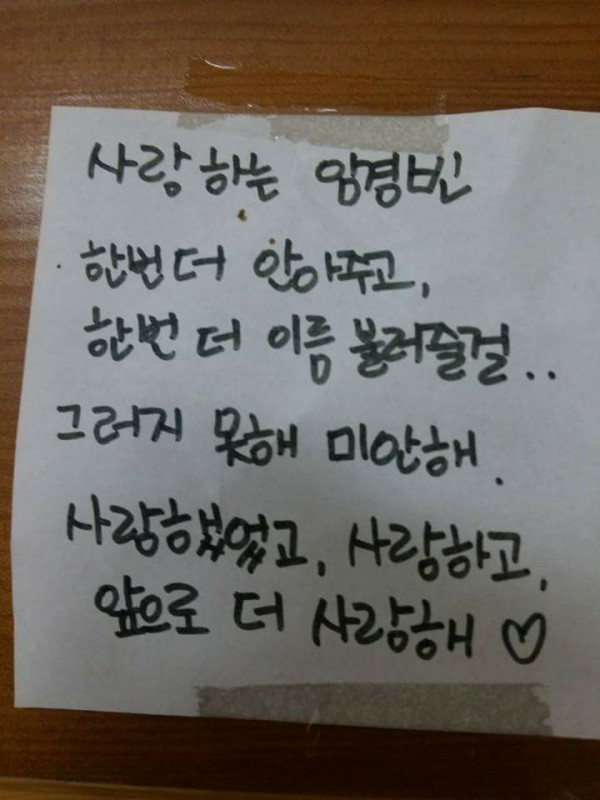 사랑하는 임경빈
한번 더 안아주고,
한번 더 이름 불러줄걸..
그러지 못해 미안해.
사랑했었고, 사랑하고,
앞으로 더 사랑해 ♡